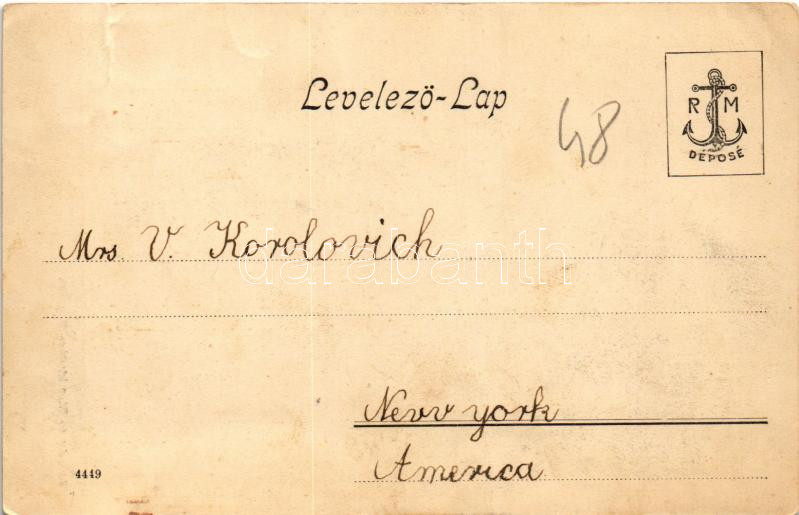 Levelező-Lap
48
R M
DÉPOSÉ
Mrs V. Korolovich
darabanth
New york
America
4449